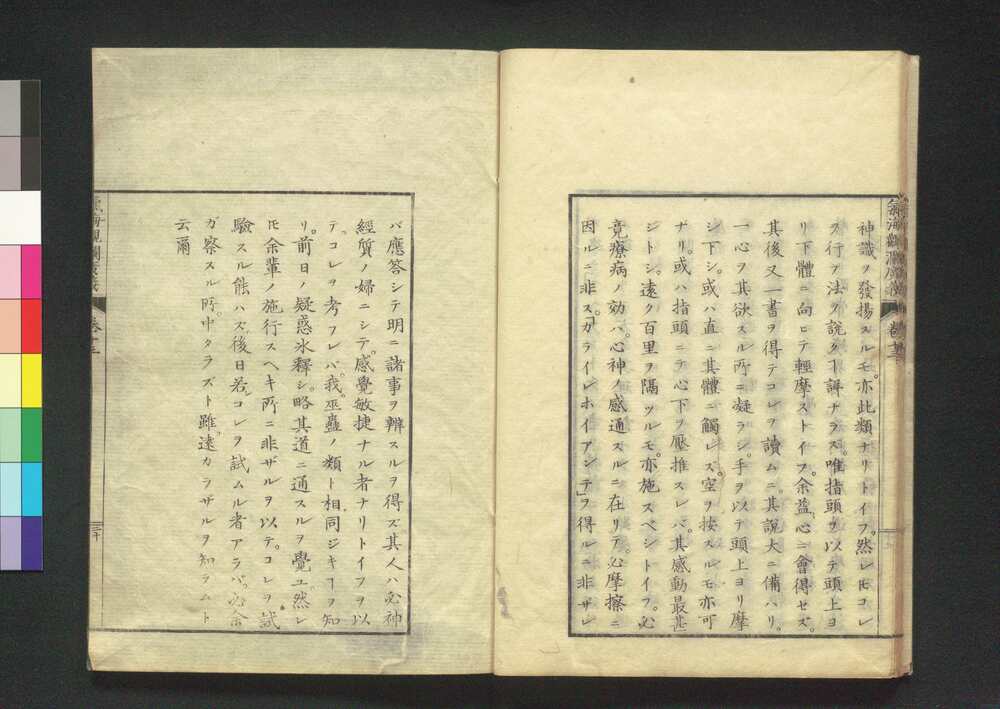 神識ヲ發揚スルモ亦此類ナリトイフ。然レ𪜈コレ
ヲ行フ法ヲ說クヿ詳ナラス。唯指頭ヲ以テ頭上ヨ
リ下體ニ向ヒテ輕摩ストイフ。余益心ニ會得セズ。
其後又一書ヲ得テコレヲ讀ムニ。其說大ニ備ハリ。
一心ヲ其欲スル所ニ凝ラシ。手ヲ以テ頭上ヨリ摩
シ下シ。或ハ直ニ其體ニ觸レズ。空ヲ按スルモ亦可
ナリ。或ハ指頭ニテ心下ヲ壓推スレバ。其感動最甚
ジトシ。遠ク百里ヲ隔ツルモ。亦施スベシトイフ。必
竟療病ノ効ハ。心神ノ感通スルニ在リテ。必摩擦ニ
因ルニ非ス。「ガライレホイアンテ」ヲ得ルニ非ザレ
バ應答シテ明ニ諸事ヲ辨スルヲ得ズ其人ハ必神
經質ノ婦ニシテ。感覺敏捷ナル者ナリトイフヲ以
テ。コレヲ考フレバ。我巫蠱ノ類ト相同ジキヿヲ知
リ。前日ノ疑惑氷釋シ。略其道ニ通スルヲ覺ユ。然レ
𪜈余輩ノ施行スヘキ所ニ非ザルヲ以テ。コレヲ試
驗スル能ハズ。後日若シコレヲ試ムル者アラバ。必余
ガ察スル所。中タラズト雖。遠カラザルヲ知ラムト
云爾
卷十三
三十